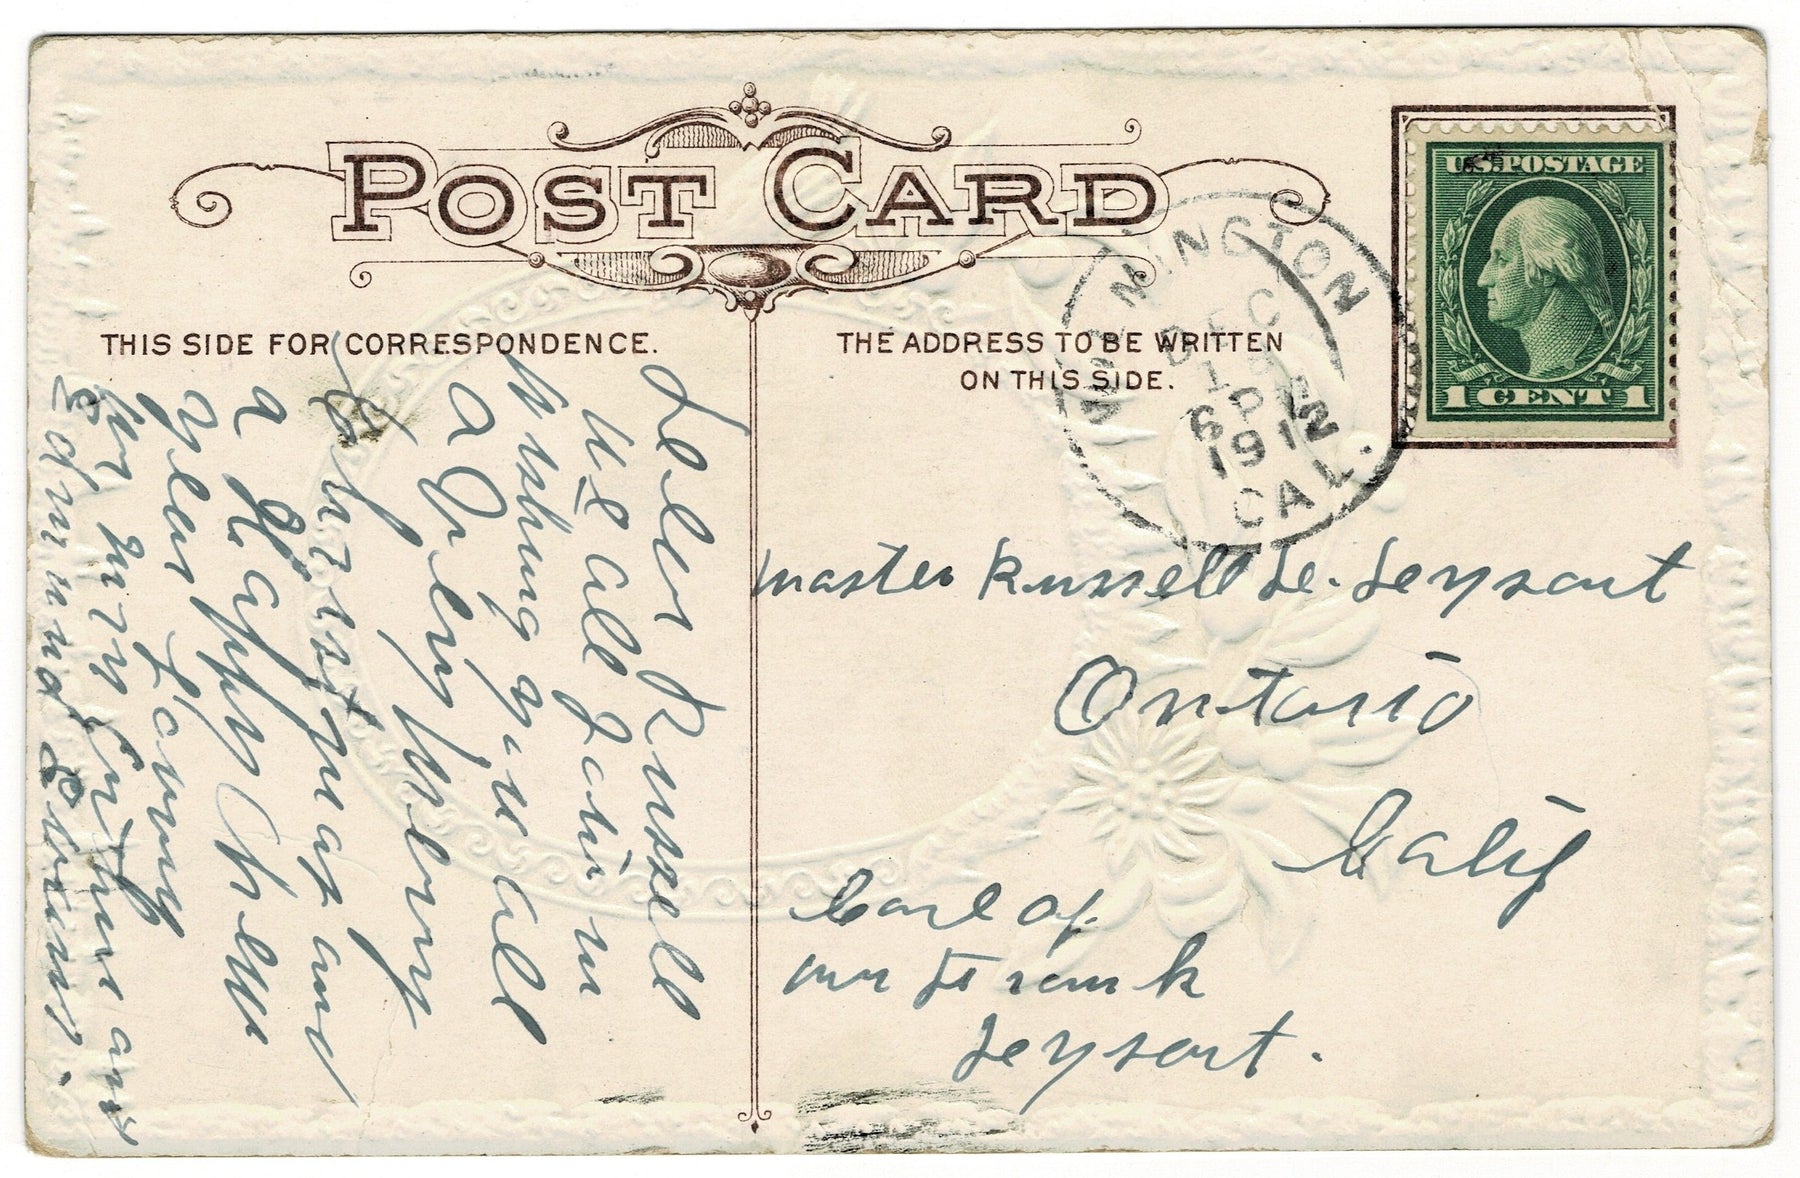 POST CARD
THIS SIDE FOR CORRESPONDENCE.
THE ADDRESS TO BE WRITTEN
ON THIS SIDE.
U.S. POSTAGE
1 CENT 1
WILMINGTON
DEC
6 P
1912
CAL.
Master Russell Le. Leysart
Ontario
Calif
Care of
mr Frank
Leysart.
Russell
We all Join in
Wishing you all
a Very Merry
Christmas and
a Happy New
year Loving
and
Edmund Evans.